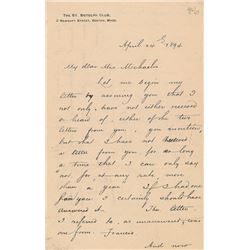 THE ST. BOTOLPH CLUB,
2 NEWBURY STREET, BOSTON, MASS.
April 24th 1894.
My dear Mrs. Michaelis
Let me begin my
letter by assuring you that I
not only have not either received
or heard of, either of the two
letters from you, you mention,
but that I have not received
a letter from you for as long
a time that I can only say
not for, at any rate, more
than a year. If I had one
from you I certainly should have
answered it. The letter
I referred to, as unanswered, was
one from Francis
And now